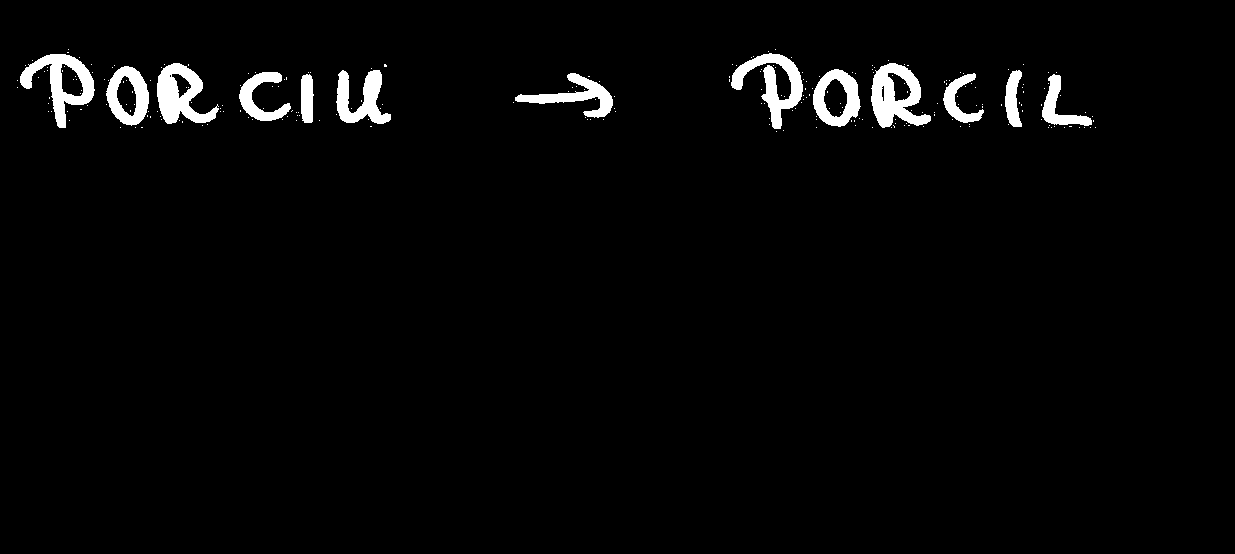 PORCIU → PORCIL